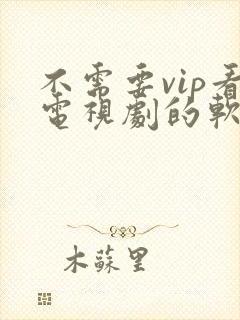 不需要vip看
電視劇的軟
木蘇里